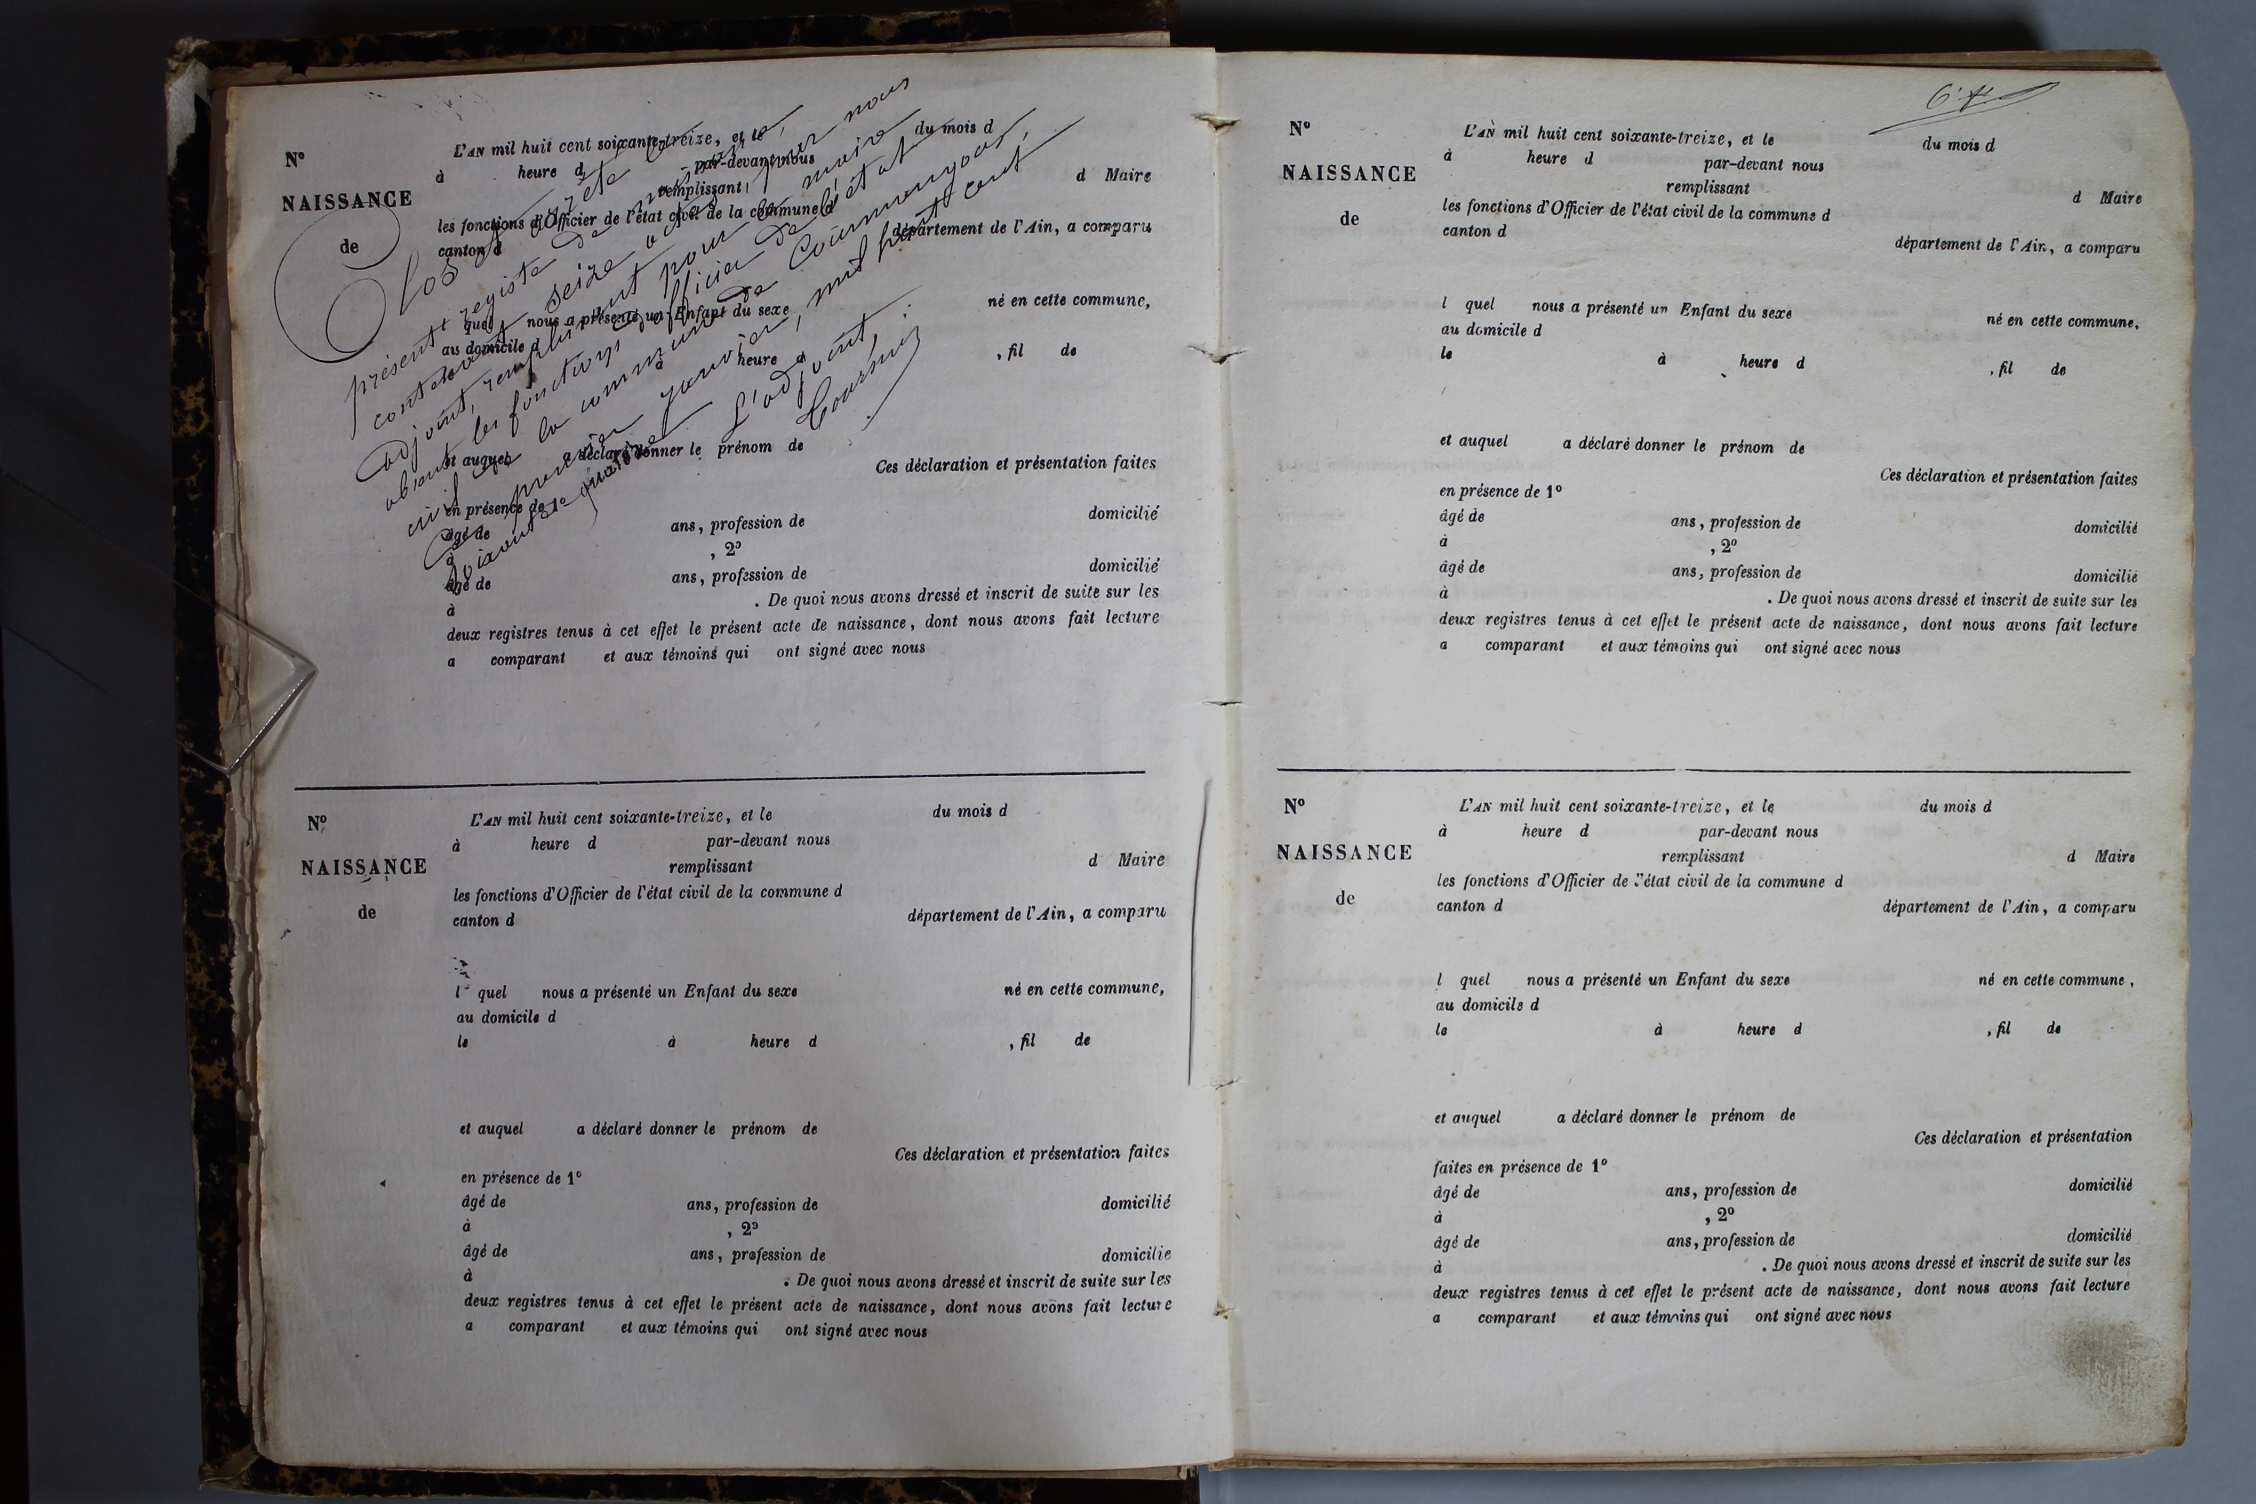 N°
NAISSANCE
de
L'AN mil huit cent soixante-treize, et le du mois d
à heure d par-devant nous
remplissant d Maire
les fonctions d'Officier de l'état civil de la commune d
canton d département de l'Ain, a comparu
quel nous a présenté un Enfant du sexe né en cette commune,
au domicile d
à heure d , fil de
et auquel a déclaré donner le prénom de
Ces déclaration et présentation faites
en présence de 1°
âgé de ans, profession de domicilié
à , 2°
âgé de ans, profession de domicilié
à . De quoi nous avons dressé et inscrit de suite sur les
deux registres tenus à cet effet le présent acte de naissance, dont nous avons fait lecture
a comparant et aux témoins qui ont signé avec nous
Clos et arrêté le
présent registre de naissance,
contenant seize actes, par nous
adjoint, remplissant pour le maire
absent les fonctions d'officier de l'état
civil de la commune de
Ce premier janvier, mil huit cent
soixante quatorze
L'adjoint,
N°
NAISSANCE
de
L'AN mil huit cent soixante-treize, et le du mois d
à heure d par-devant nous
remplissant d Maire
les fonctions d'Officier de l'état civil de la commune d
canton d département de l'Ain, a comparu
l quel nous a présenté un Enfant du sexe né en cette commune,
au domicile d
le à heure d , fil de
et auquel a déclaré donner le prénom de
Ces déclaration et présentation faites
en présence de 1°
âgé de ans, profession de domicilié
à , 2°
âgé de ans, profession de domicilie
à . De quoi nous avons dressé et inscrit de suite sur les
deux registres tenus à cet effet le présent acte de naissance, dont nous avons fait lecture
a comparant et aux témoins qui ont signé avec nous
N°
NAISSANCE
de
L'AN mil huit cent soixante-treize, et le du mois d
à heure d par-devant nous
remplissant d Maire
les fonctions d'Officier de l'état civil de la commune d
canton d département de l'Ain, a comparu
l quel nous a présenté un Enfant du sexe né en cette commune,
au domicile d
le à heure d , fil de
et auquel a déclaré donner le prénom de
Ces déclaration et présentation faites
en présence de 1°
âgé de ans, profession de domicilié
à , 2°
âgé de ans, profession de domicilié
à . De quoi nous avons dressé et inscrit de suite sur les
deux registres tenus à cet effet le présent acte de naissance, dont nous avons fait lecture
a comparant et aux témoins qui ont signé avec nous
N°
NAISSANCE
de
L'AN mil huit cent soixante-treize, et le du mois d
à heure d par-devant nous
remplissant d Maire
les fonctions d'Officier de l'état civil de la commune d
canton d département de l'Ain, a comparu
l quel nous a présenté un Enfant du sexe né en cette commune,
au domicile d
le à heure d , fil de
et auquel a déclaré donner le prénom de
Ces déclaration et présentation
faites en présence de 1°
âgé de ans, profession de domicilié
à , 2°
âgé de ans, profession de domicilié
à . De quoi nous avons dressé et inscrit de suite sur les
deux registres tenus à cet effet le présent acte de naissance, dont nous avons fait lecture
a comparant et aux témoins qui ont signé avec nous